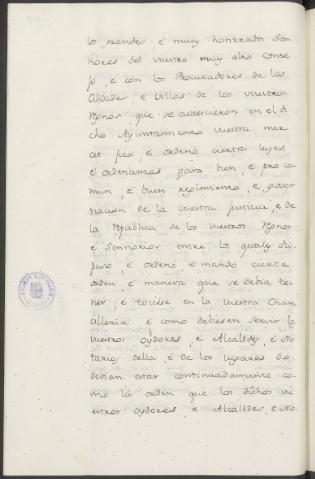 los grandes, é muy honrrados Sen
nores del vuestro muy alto Conse
jo, é con los Procuradores de las
Cibdade é Villas de los vuestros
Regnos que se acaescieron en el di
cho Ayuntamiento vuestra mer
cet fizo é ordenó ciertas leyes,
é ordenamtos para bien, é pro co
mun, é buen regimiento, é gover
nacion de la vuestra justicia, é de
la Republica de los vuestros Regnos
é Sennorios entre los quales dis
puso, é ordenó, é mandó cierta
orden, é manera que se debia te
ner é toviese en la vuestra Chan
cilleria é como debiesen servir los
vuestros oydores, é Alcalldes, é No
tarios della, é de los logares do
debian estar continuadamente co
mo la orden que los dichos vu
estros oydores, é Alcalldes, é No